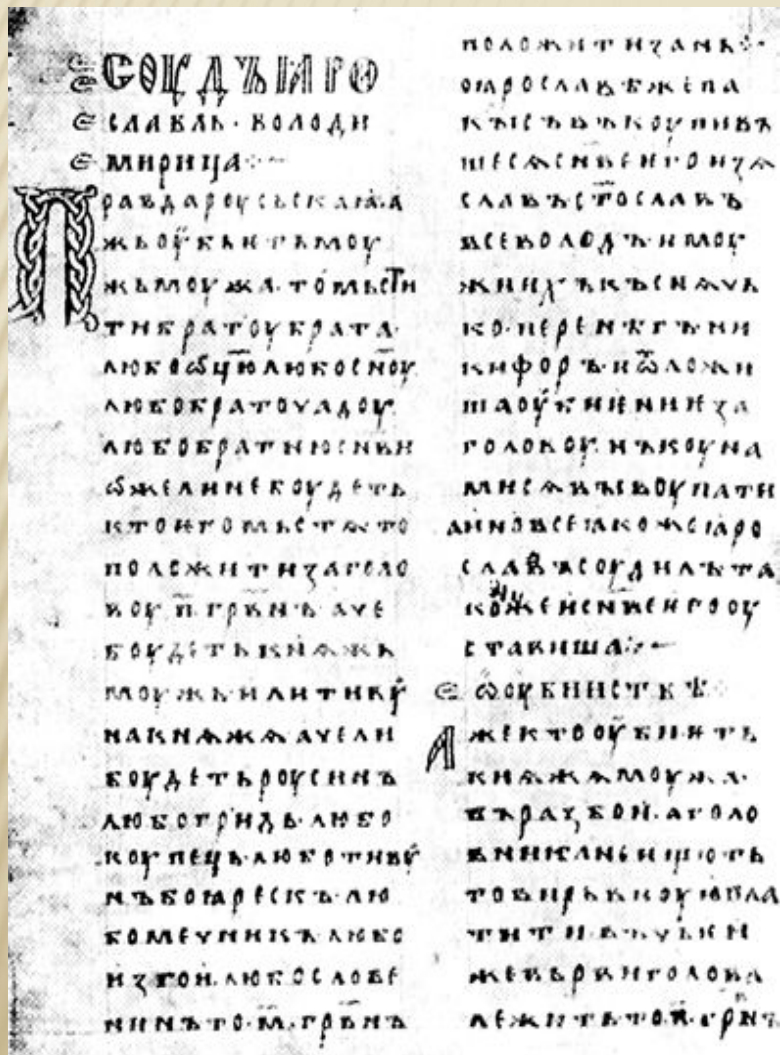 СОУДЪ ꙖРО
СЛАВЛЬ · ВОЛОДИ
МИРИЦА ⁘~
ПРАВДА РОУСЬСКАꙖ А
ЖЬ ОУБИѤТЬ МОУ
ЖЬ МОУЖА · ТО МЬСТИ
ТИ БРАТОУ БРАТА ·
ЛЮБО ѾЦЮ ЛЮБО СН҃ОУ
ЛЮБО БРАТОУЧАДОУ
ЛЮБО БРАТНЮ СН҃ВИ
ѠЖЕ ЛИ НЕ БОУДЕТЬ
КТО ѤГО МЬСТѦ ТО
ПОЛОЖИТИ ЗА ГОЛО
ВОУ · П҃ · ГРВ҃НЪ · АЧЕ
БОУДЕТЬ КНѦЖЬ
МОУЖЬ ИЛИ ТИВОУ
НА КНѦЖѦ АЧЕ ЛИ
БОУДЕТЬ РОУСИНЪ
ЛЮБО ГРИДЬ · ЛЮБО
КОУПЕЦЬ · ЛЮБО ТИВОУ
НЪ БОꙖРЕСКЪ · ЛЮ
БО МЕЧНИКЪ ЛЮБО
ИЗГОИ · ЛЮБО СЛОВЕ
НИНЪ ТО · М҃ · ГРВ҃НЪ
ПОЛОЖИТИ ЗА НЬ ⁘
ПО ꙖРОСЛАВѢ ЖЕ ПА
КЫ СЪВЪКОУПИВЪ
ШЕСѦ СН҃ВЕ ѤГО ИЗѦ
СЛАВЪ СТ҃ОСЛАВЪ
ВСЕВОЛОДЪ · И МОУ
ЖИ ИХЪ КЪСНѦЧЬ
КО · ПЕРЕНѢГЪ · НИ
КИФОРЪ · И ѾЛОЖИ
ША ОУБИѤНИѤ ЗА
ГОЛОВОУ · НЪ КОУНА
МИ СѦ ВЫКОУПАТИ
А ИНО ВСЕ ꙖКОЖЕ ꙖРО
СЛАВЪ СОУДИЛЪ ТА
КОЖЕ И СН҃ВЕ ѤГО ОУ
СТАВИША ⁘~
Ѡ ОУБИИСТВѢ ⁘
АЖЕ КТО ОУБИѤТЬ
КНѦЖѦ МОУЖА ·
ВЪ РАЗБОИ · А ГОЛО
ВНИКА НЕ ИЩЮТЬ
ТО ВИРЬВНОУЮ ПЛА
ТИТИ · ВЪ ЧЬѤИ
ЖЕ ВЬРВИ ГОЛОВА
ЛЕЖИТЬ ТО · П҃ · ГРВ҃НЪ